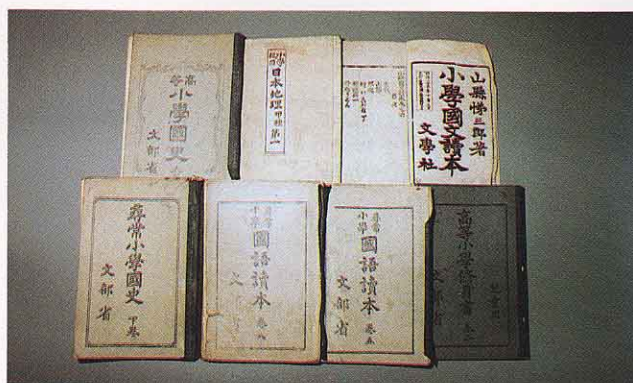 高等
小學國史
文部省
小學校用
日本地理
甲種
第一
山縣悌三郎著
小學國文讀本
文學社
尋常小學國史
下巻
文部省
尋常
小學
國語讀本
巻八
文部省
尋常
小學
國語讀本
巻五
文部省
高等小學修身書
巻二
兒童用